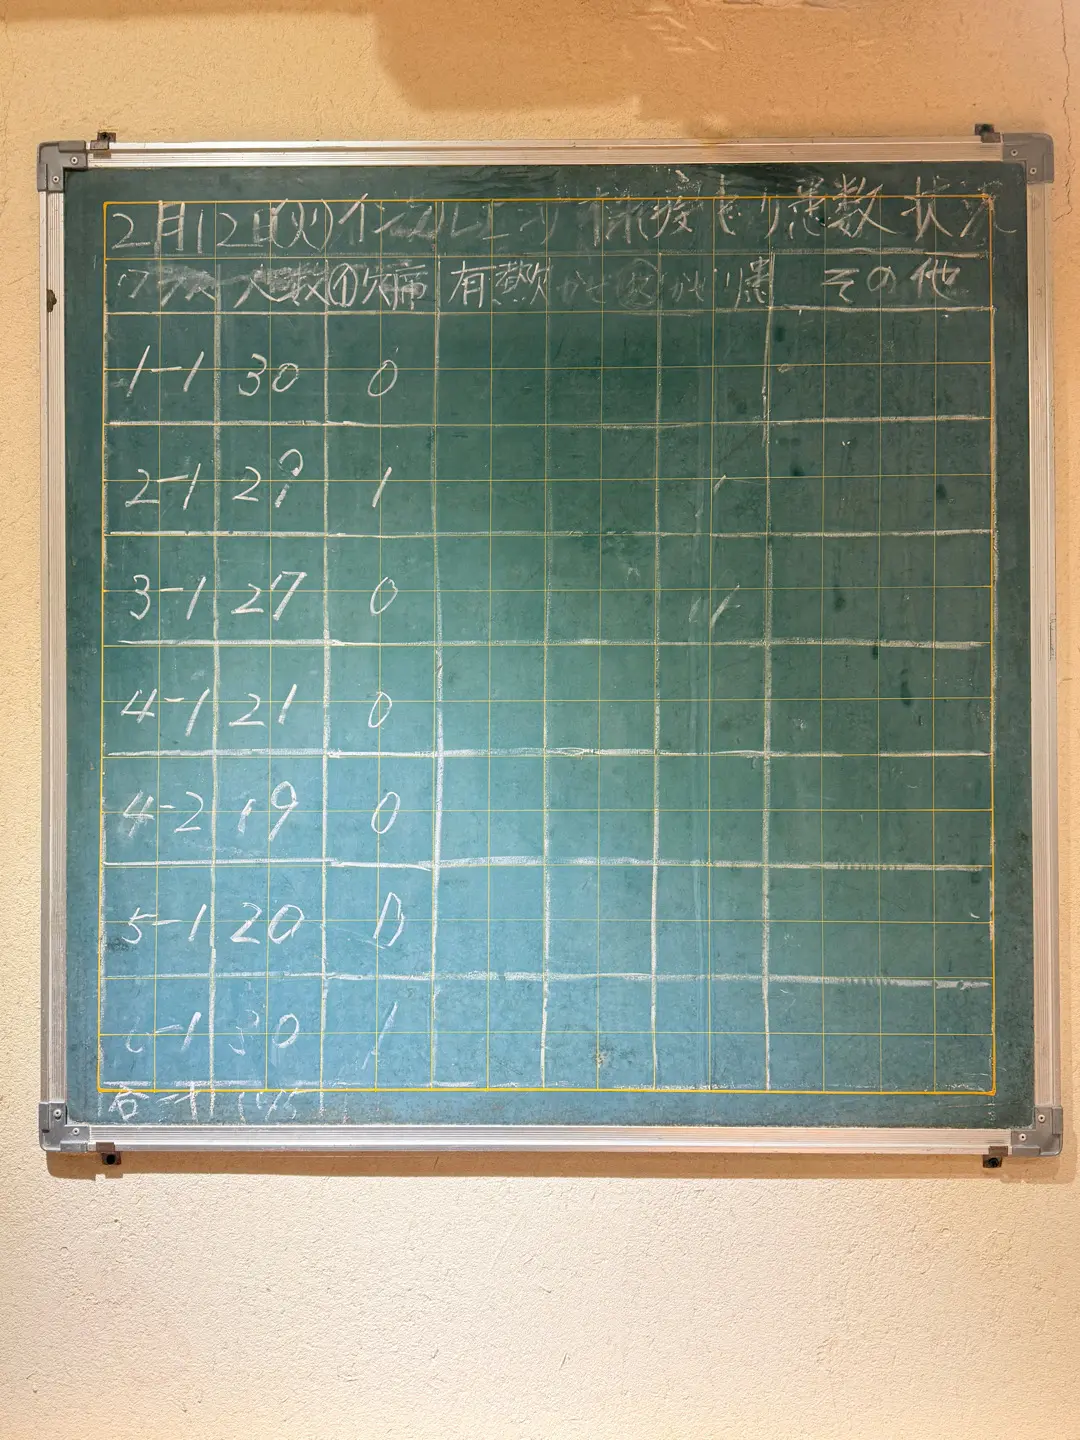 2月12日(火)インフルエンザ様疾 り患数 状況
クラス 人数 ①欠席 有熱 かぜ り患 その他
1-1 30 0
2-1 2? 1
3-1 27 0
4-1 21 0
4-2 19 0
5-1 20 0
-1 30 1